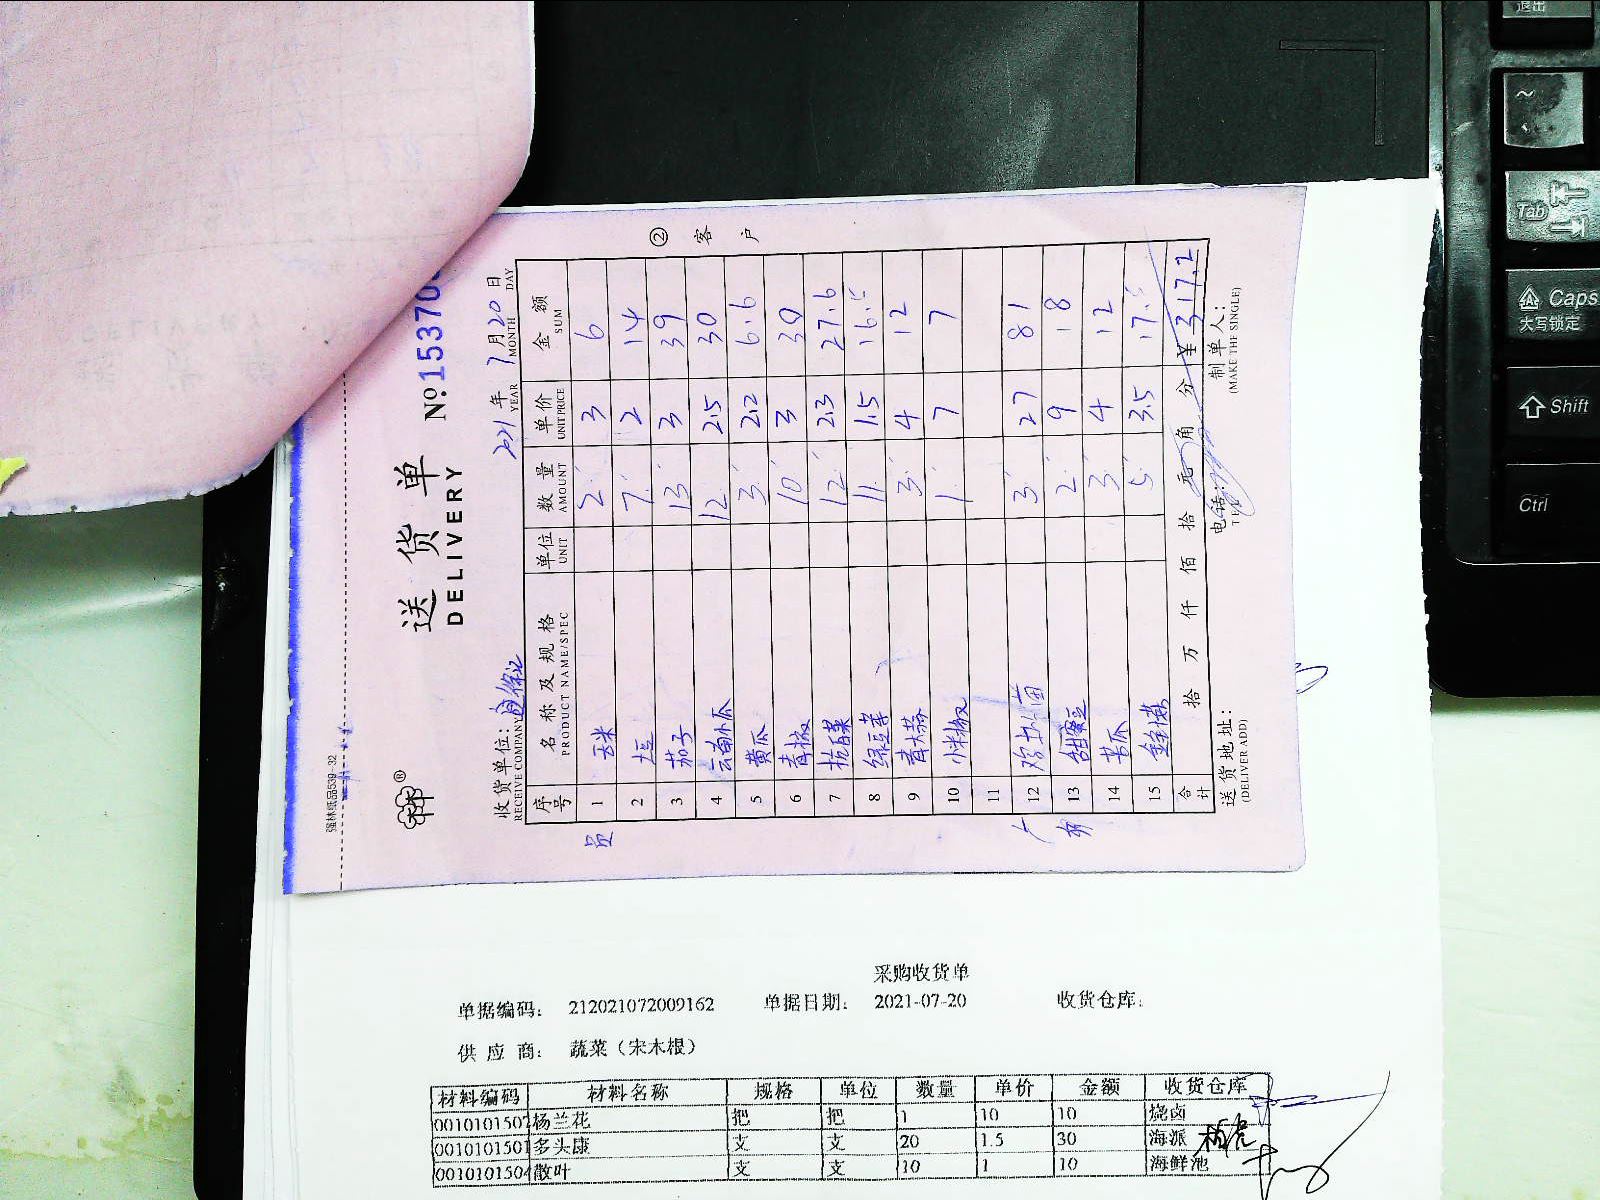 强林纸品539-32
送货单
DELIVERY
№ 15370
收货单位:
RECEIVE COMPANY
2021 年 7 月 20 日
YEAR MONTH DAY
② 客户
序号 名称及规格 单位 数量 单价 金额
PRODUCT NAME/SPEC UNIT AMOUNT UNIT PRICE SUM
员
1 玉米 2 3 6
2 7 2 14
3 茄子 13 3 39
4 云南小瓜 12 2.5 30
5 黄瓜 3 2.2 6.6
6 青椒 10 3 30
7 杭白菜 12 2.3 27.6
8 绿豆芽 11 1.5 16.5
9 青大蒜 3 4 12
10 小米椒 1 7 7
11
12 3 27 81
13 甜蜜豆 2 9 18
14 苦瓜 3 4 12
15 5 3.5 17.5
合计 拾 万 仟 佰 拾 元 角 分 ¥317.2
送货地址:
(DELIVER ADD)
电话:
制单人:
(MAKE THE SINGLE)
采购收货单
单据编码: 212021072009162 单据日期: 2021-07-20 收货仓库:
供应商: 蔬菜(宋木根)
材料编码 材料名称 规格 单位 数量 单价 金额 收货仓库
001010150 杨兰花 把 把 1 10 10 烧卤
001010150 多头康 支 支 20 1.5 30 海派
001010150 散叶 支 支 10 1 10 海鲜池
退出
~
Tab
Caps
大写锁定
Shift
Ctrl